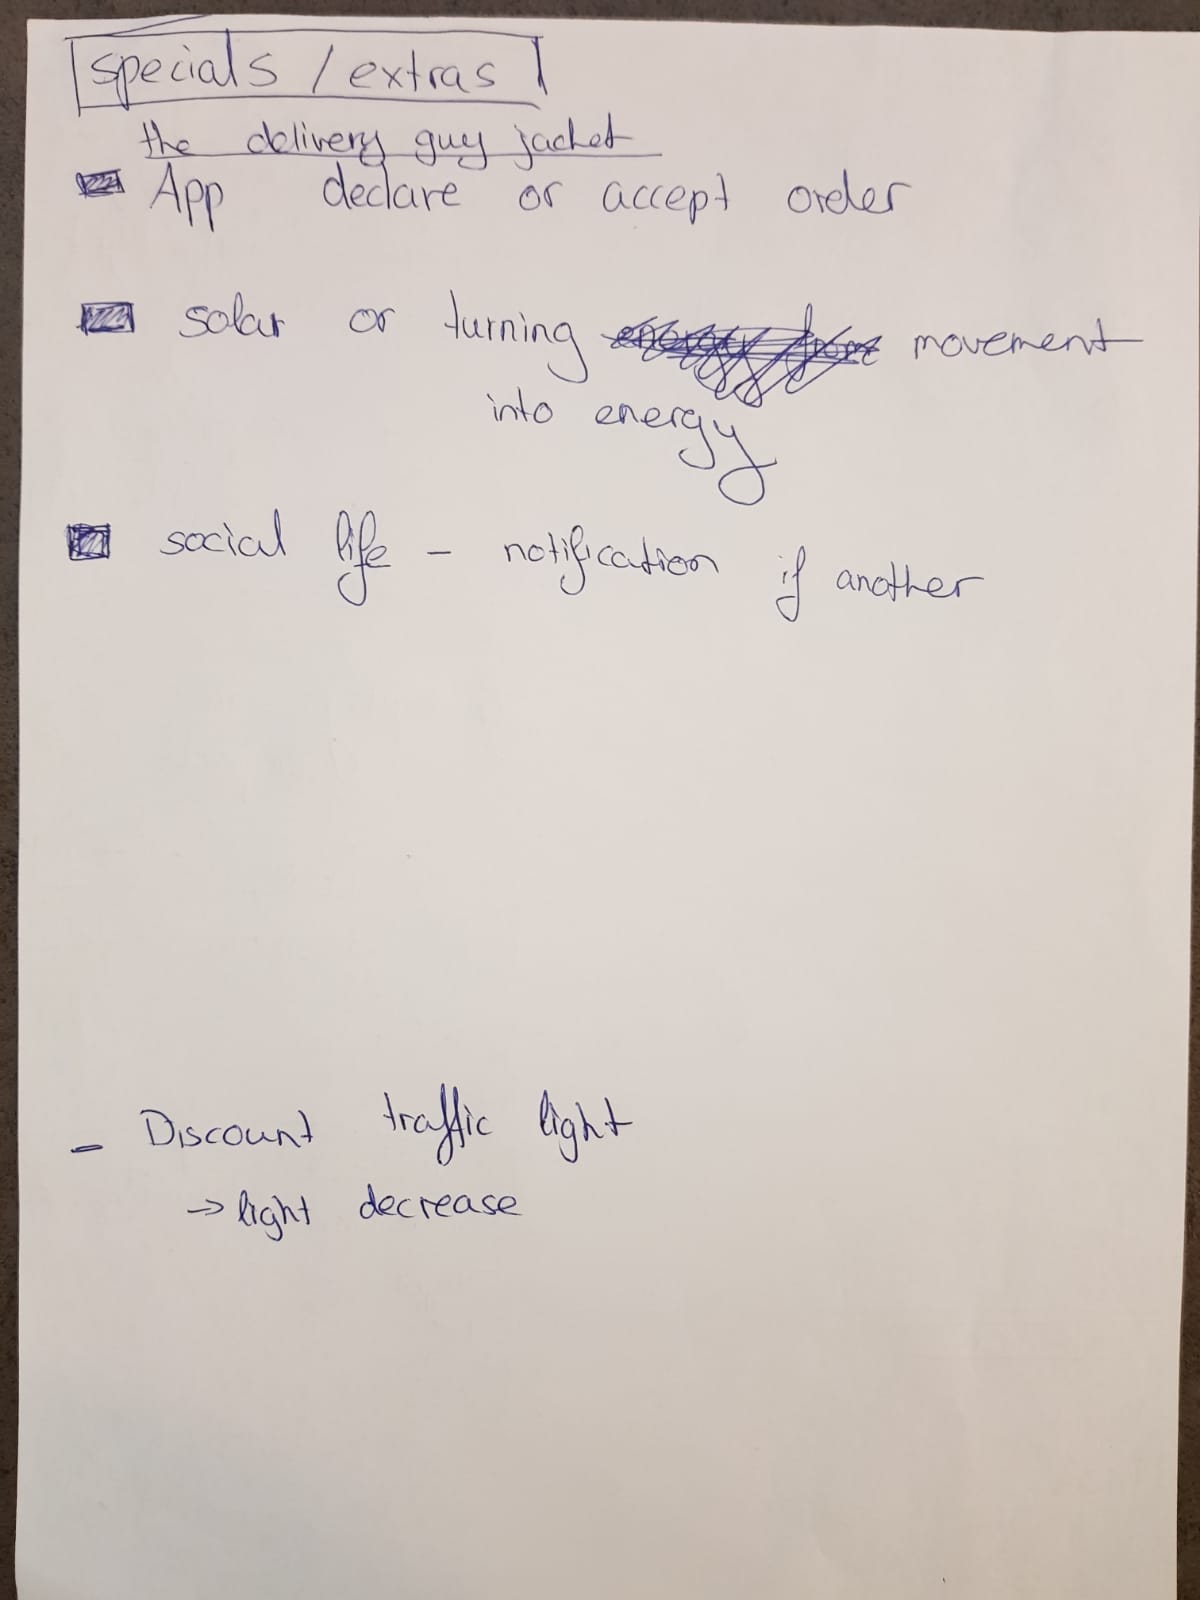 specials / extras
the delivery guy jacket
App declare or accept order
solar or turning movement
into energy
social life - notification if another
- Discount traffic light
→ light decrease